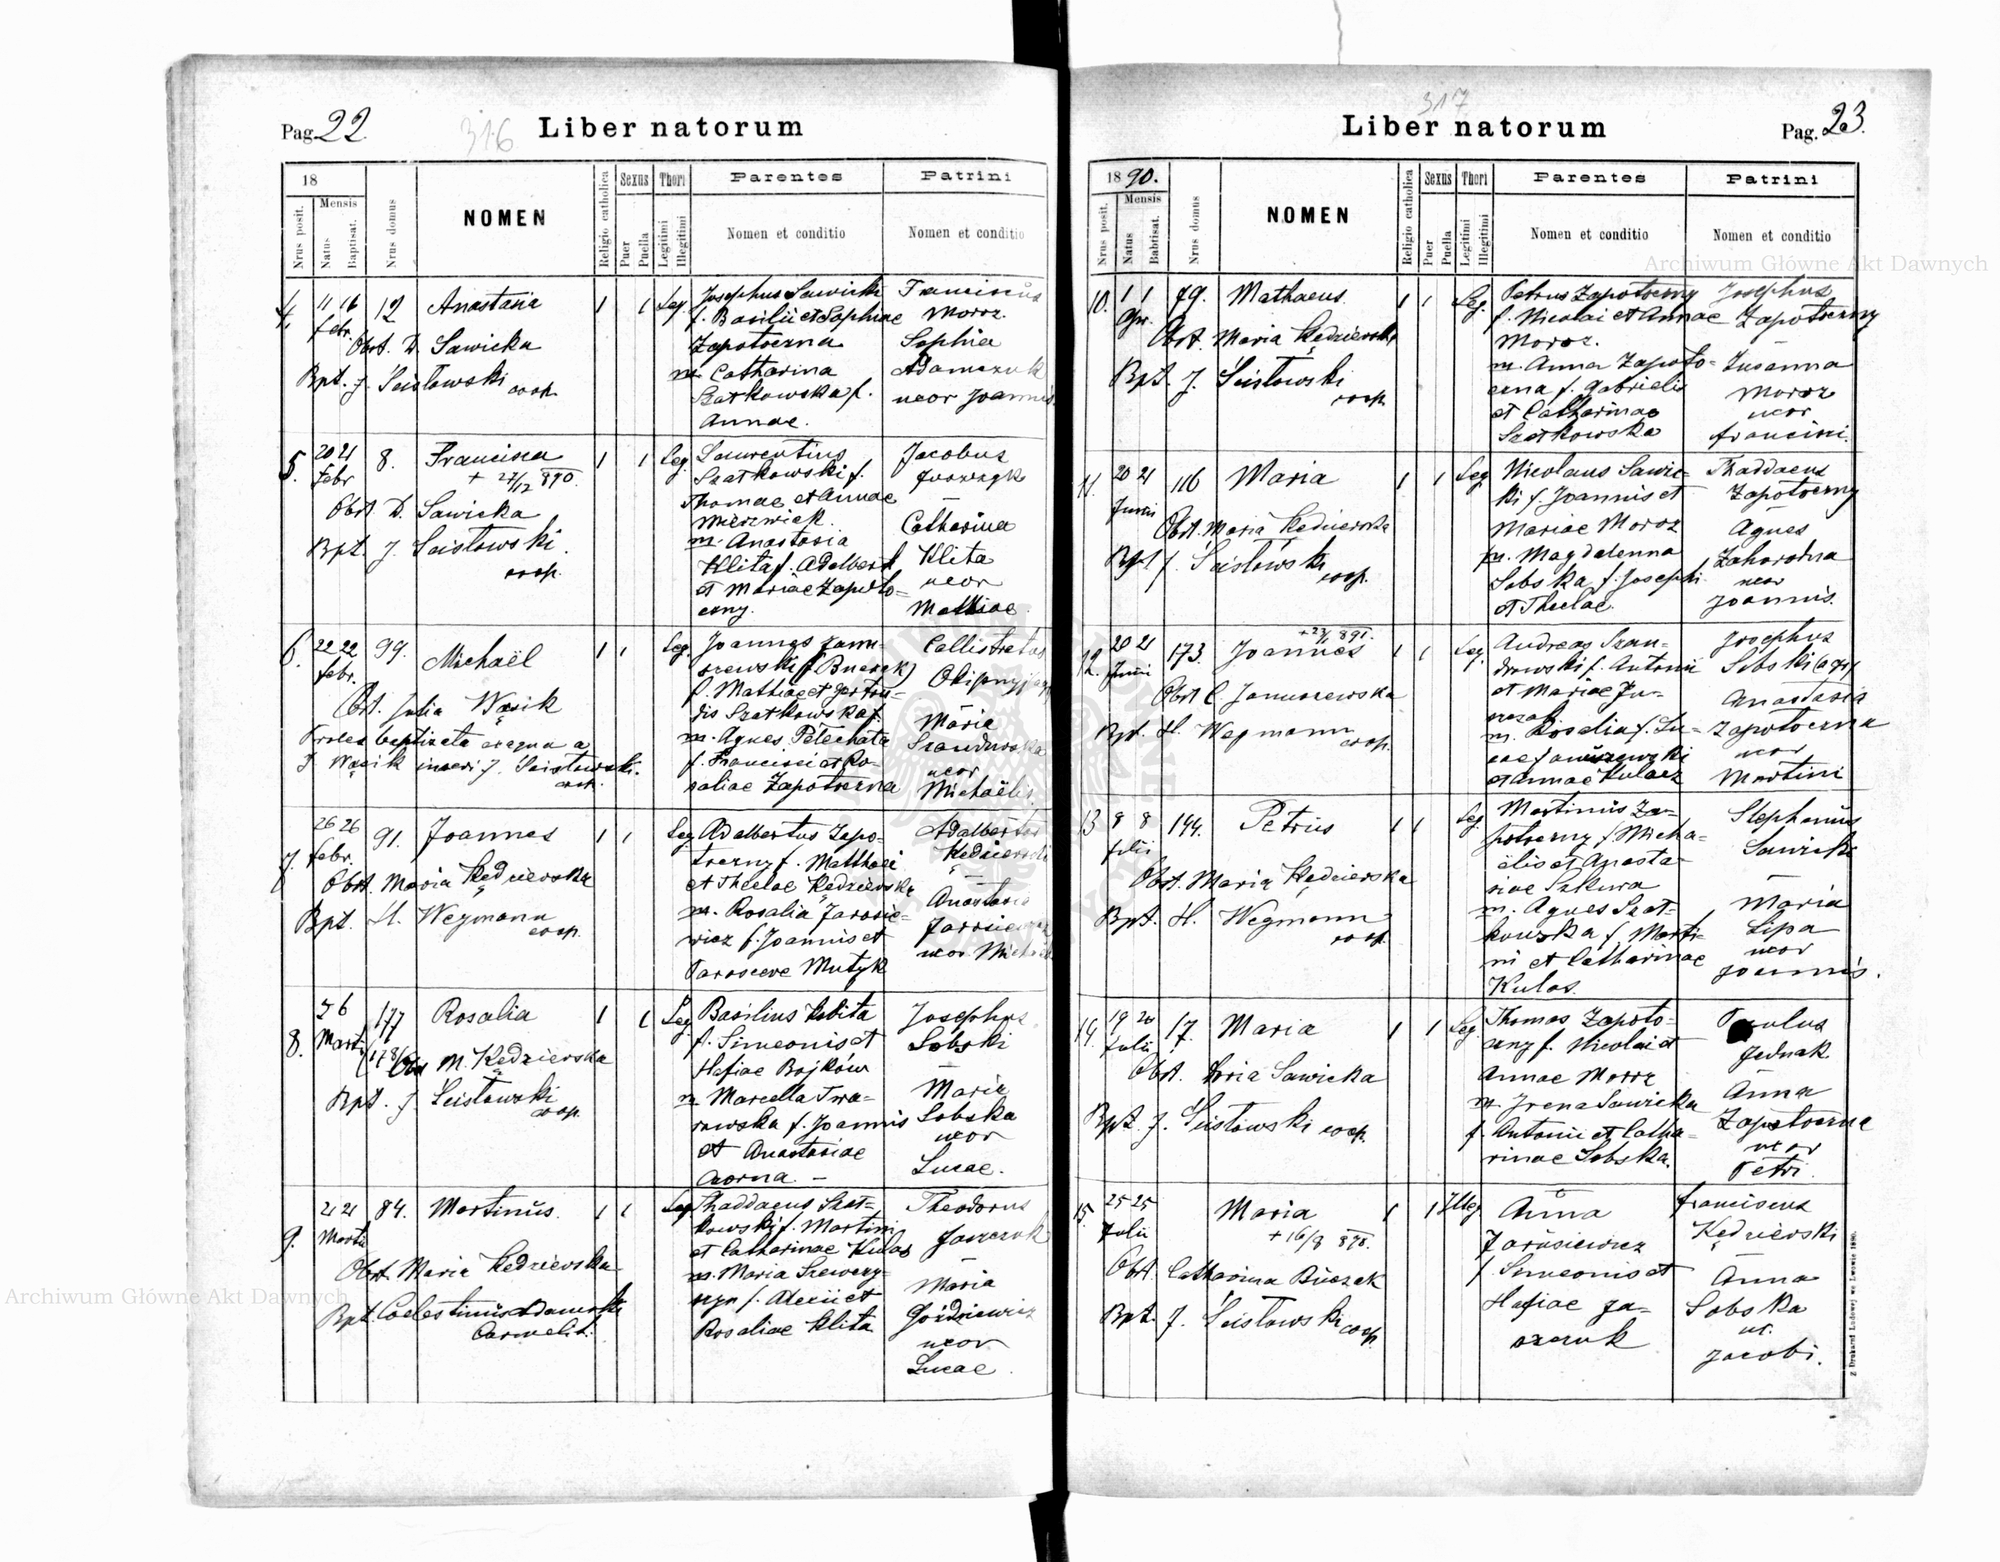 Pag. 22.
316
Liber natorum
18
Mensis
Nrus posit.
Natus
Baptisat.
Nrus domus
NOMEN
Religio catholica
Sexus
Puer
Puella
Thori
Legitimi
Illegitimi
Parentes
Nomen et conditio
Patrini
Nomen et conditio
4.
11 16
febr.
12
Anastasia
1
1
Leg.
Obst. D. Sawicka
Bpt. J. Ścisłowski
coop.
Josephus Sawicki
f. Basilii et Sophiae
Zapotoczna
m. Catharina
Szatkowska f.
Annae.
Franciscus
Moroz
Sophia
Adamczuk
uxor Joannis.
5.
20 21
Febr
8.
Francisca
+ 27/12 890.
1
1
Leg
Obst D. Sawicka
Bpt. J. Ścisłowski.
coop.
Laurentius
Szatkowski f.
Thomae et Annae
m. Anastasia
Klita f. Adalberti
et Mariae Zapoto=
czny.
Jacobus
Catharina
Klita
uxor
Mathiae.
6.
22 22
febr.
99.
Michaël
1
1
Leg.
Obst. Julia Wąsik
Proles baptizata ex aqua a
J. Wąsik inscri J. Ścisłowski.
coop.
Joannes Janu-
szewski (Buczek)
f. Mathiae et Gertru-
dis Szatkowska f.
m. Agnes Pelechata
f. Francisci et Ro-
saliae Zapotoczna
Callistratus
Maria
uxor
Michaëlis.
7.
26 26
febr.
91.
Joannes
1
1
Leg
Obst. Maria Kędzierska
Bpt. H. Wegmann
coop.
Adalbertus Zapo-
toczny f. Matthaei
et Theclae Kędzierska
m. Rosalia Jarosie-
wicz f. Joannis et
Parasceve Mutyk
Adalbertus
Kędzierski
Anastasia
Jarosiewicz
uxor Michaëlis
8.
5 6
Marti
177
(178)
Rosalia
1
1
Leg
Obst M. Kędzierska
Bpt. J. Ścisłowski
coop.
Basilius Kobita
f. Simeonis et
Hafiae Bojków
m. Marcella Twa-
rowska f. Joannis
et Anastasiae
Czorna. —
Josephus
Sobski
Maria
Sobska
uxor
Lucae.
9.
21 21
Martii
84.
Martinus.
1
1
Leg
Obst. Maria Kędzierska
Bpt. Coelestinus Adamski
Carmelit.
Thaddaeus Szat-
kowski f. Martini
et Catharinae Kulas
m. Maria Szewczy-
szyn f. Alexii et
Rosaliae Klita
Theodorus
Jaszczuk
Maria
Goździewicz
uxor
Lucae.
317
Liber natorum
Pag. 23.
1890.
Mensis
Nrus posit.
Natus
Babtisat.
Nrus domus
NOMEN
Religio catholica
Sexus
Puer
Puella
Thori
Legitimi
Illegitimi
Parentes
Nomen et conditio
Patrini
Nomen et conditio
10.
1 1
Apr.
79.
Mathaeus.
1
1
Leg.
Obst. Maria Kędzierska
Bpt. J. Ścisłowski
coop.
Petrus Zapotoczny
f. Nicolai et Annae
Moroz.
m. Anna Zapoto=
czna f. Gabrielis
et Catharinae
Szatkowska
Josephus
Zapotoczny
Zusanna
Moroz
uxor
Francisci.
11.
20 21
Junii
116
Maria
1
1
Leg
Obst. Maria Kędzierska
Bpt. J. Ścisłowski
coop.
Nicolaus Sawic-
ki f. Joannis et
Mariae Moroz
m. Magdalenna
Sobska f. Josephi
et Theclae.
Thaddaeus
Zapotoczny
Agnes
Zahorodna
uxor
Joannis.
12.
20 21
Junii
173.
+ 23/1 891.
Joannes
1
1
Leg.
Obst C. Januszewska
Bpt. H. Wegmann
coop.
Andreas Szan-
drowski f. Antonii
et Mariae Ju-
szczak
m. Rosalia f. Lu-
cae Januszewski
et Annae Kulacz
Josephus
Sobski
Anastasia
Zapotoczna
uxor
Martini
13
8 8
Julii
144.
Petrus
1
1
Leg.
Obst. Maria Kędzierska
Bpt. H. Wegmann
coop.
Martinus Za-
potoczny f. Micha-
ëlis et Anasta-
siae Szkura
m. Agnes Szat-
kowska f. Marti-
ni et Catharinae
Kulas.
Stephanus
Sawicki
Maria
Lipa
uxor
Joannis.
14.
19 20
Julii
17.
Maria
1
1
Leg
Obst. Sawicka
Bpt. J. Ścisłowski coop.
Thomas Zapoto-
czny f. Nicolai et
Annae Moroz
m. Irena Sawicka
f. Antonii et Catha-
rinae Sobska.
Paulus
Jednak
Anna
Zapotoczna
uxor
Petri.
15.
25 25
Julii
Maria
+ 16/8 890.
1
1
Illeg
Obst. Catharina Buczek
Bpt. J. Ścisłowski coop.
Anna
Jarosiewicz
f. Simeonis et
Hafiae Ja-
szczuk
Franciscus
Kędzierski
Anna
Sobska
ux.
Jacobi.
Z Drukarni Ludowej we Lwowie 1880.
Archiwum Główne Akt Dawnych
Archiwum Główne Akt Dawnych